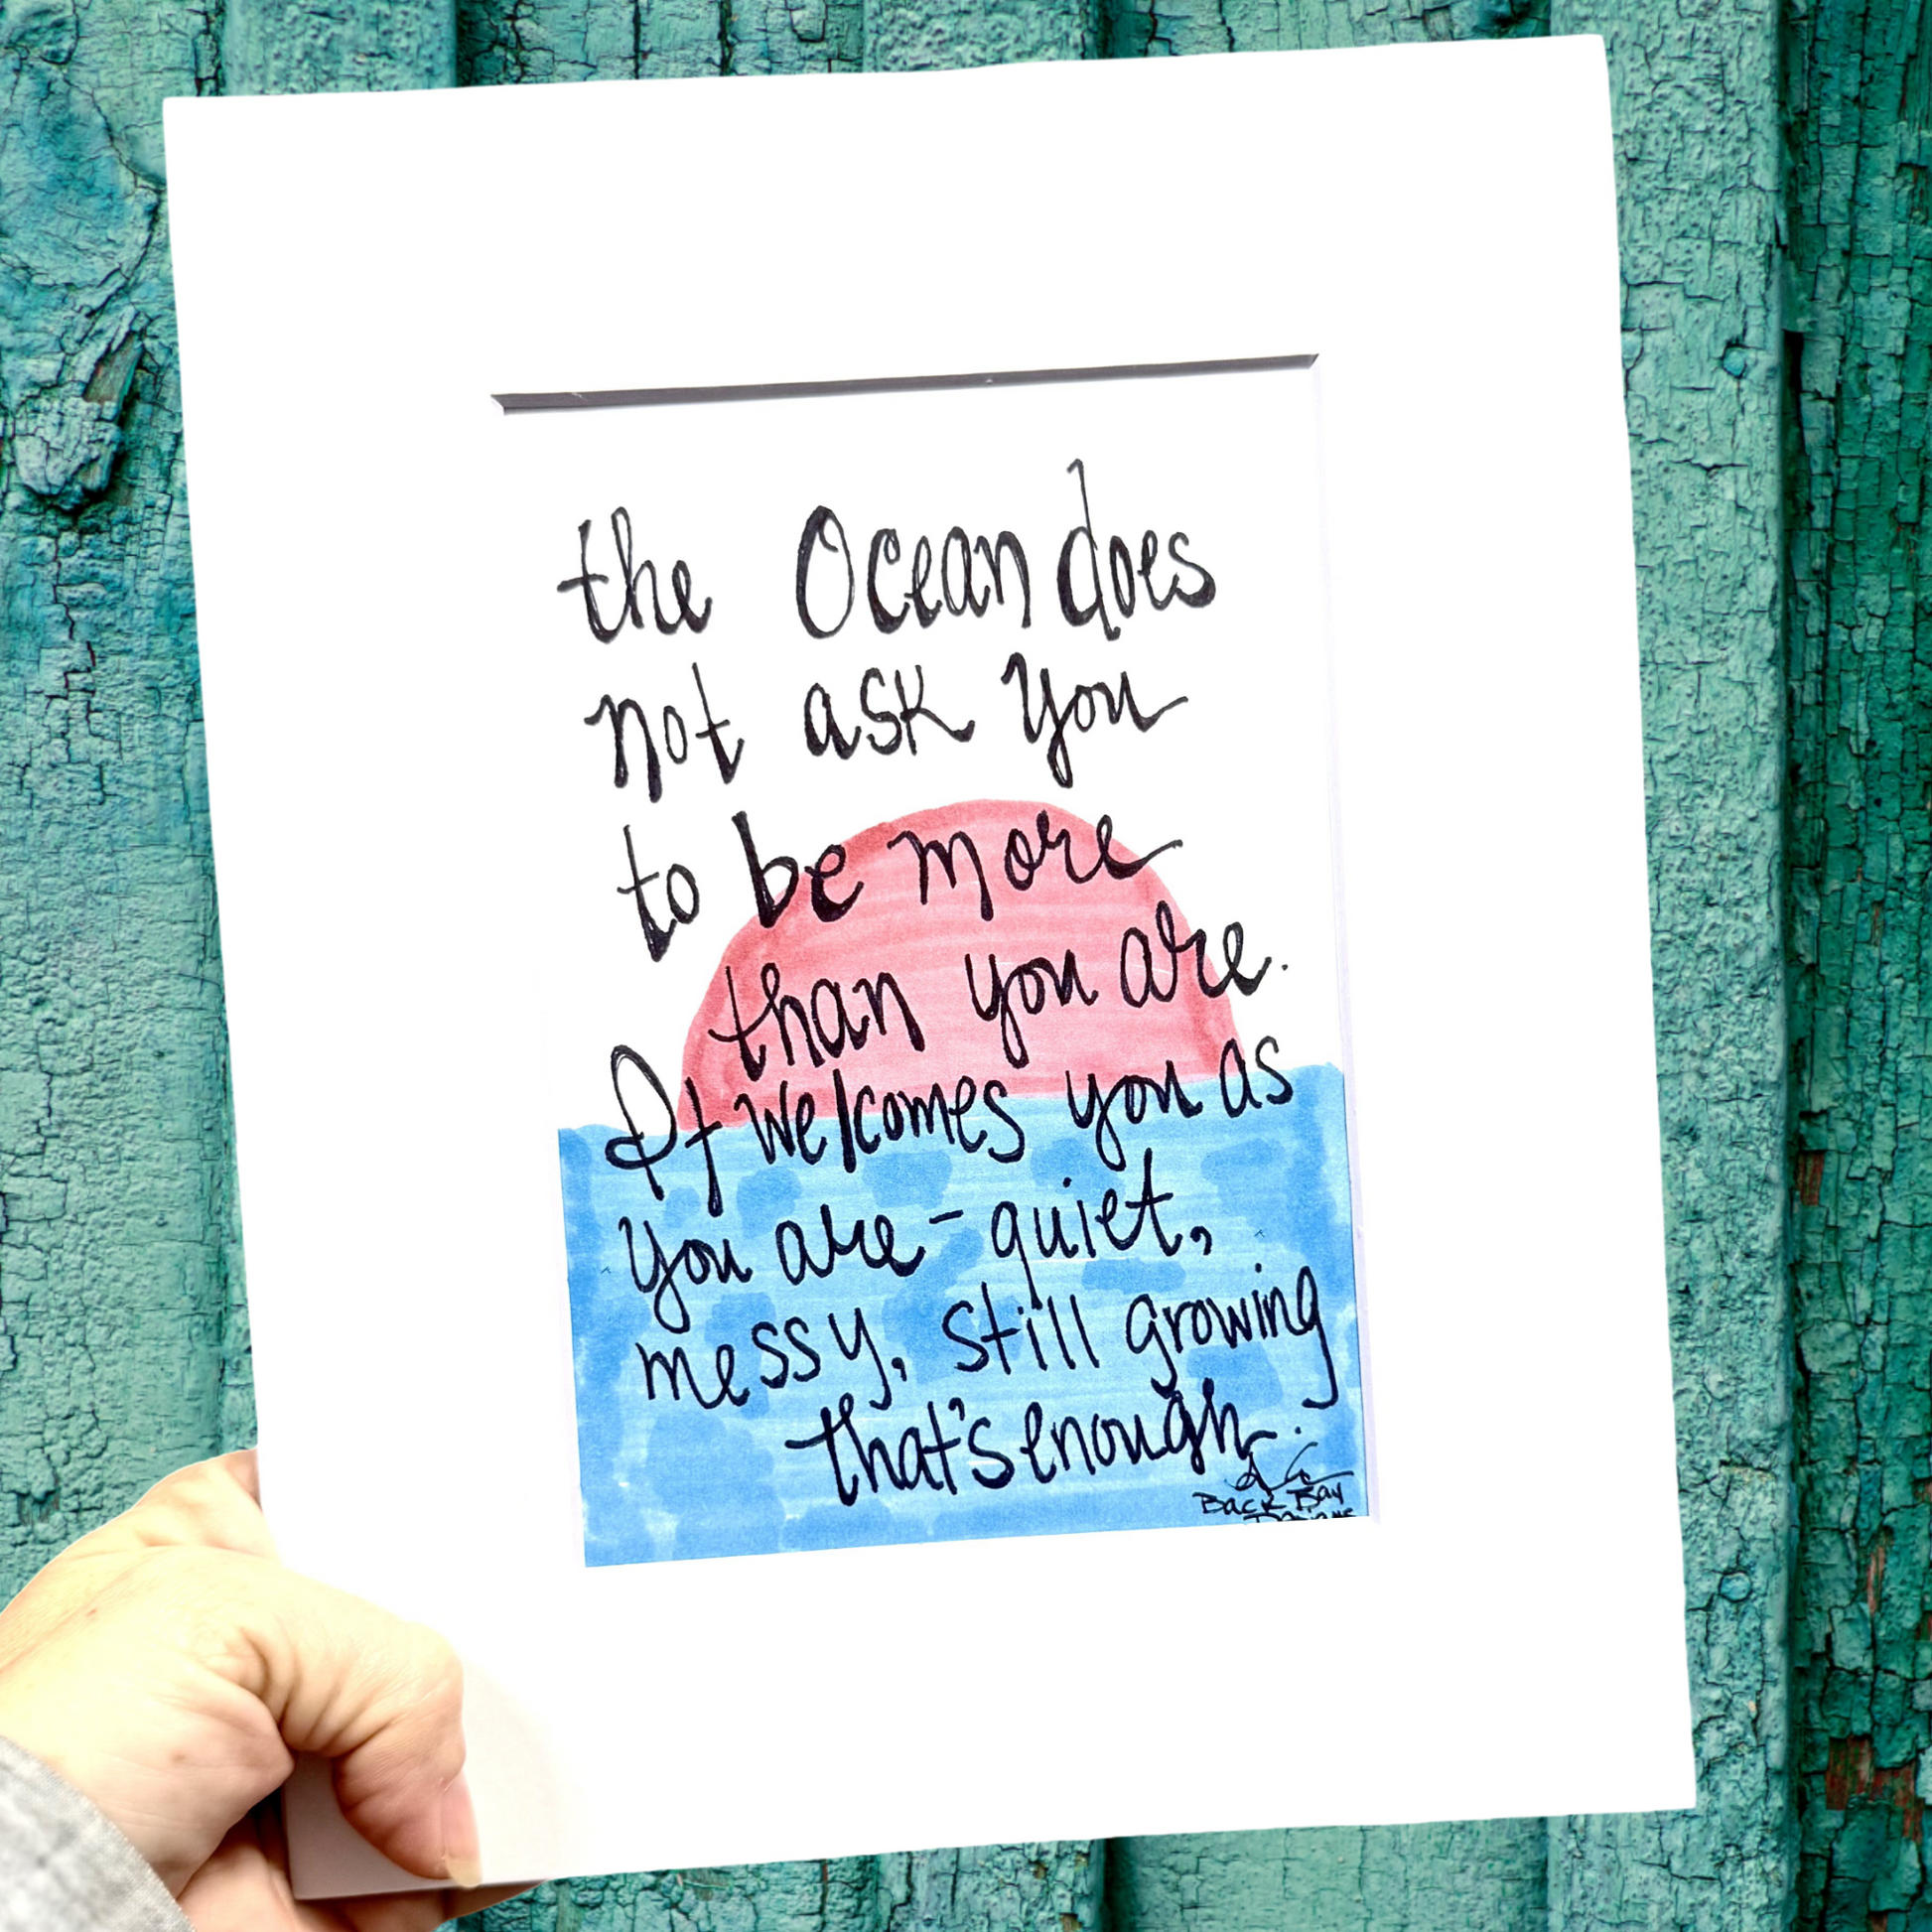 the Ocean does
not ask you
to be more
than you are.
It welcomes you as
you are - quiet,
messy, still growing
that's enough.
Back Bay